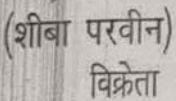 (शीबा परवीन)
विक्रेता